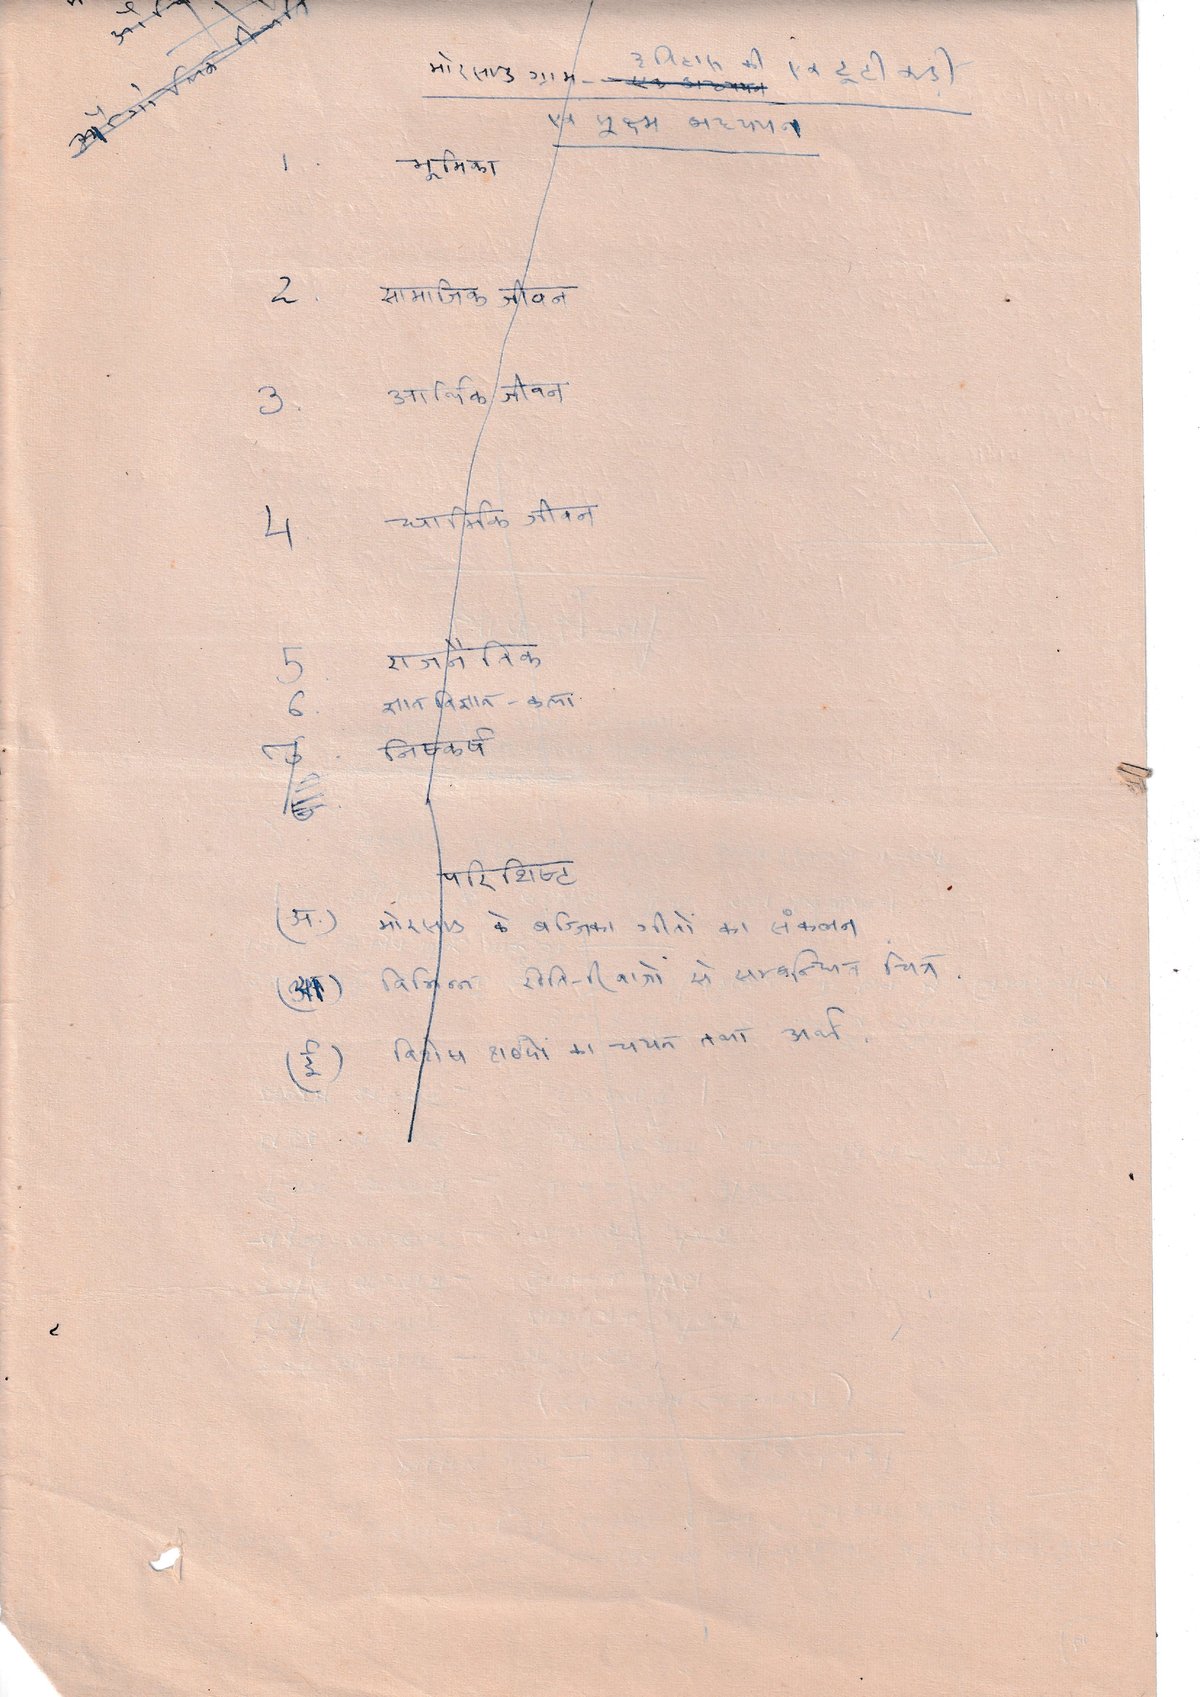 मोरसण्ड ग्राम - इतिहास की एक टूटी कड़ी
एक अध्ययन
एक सूक्ष्म अध्ययन
1. भूमिका
2. सामाजिक जीवन
3. आर्थिक जीवन
4. धार्मिक जीवन
5. राजनैतिक
6. ज्ञान विज्ञान - कला
निष्कर्ष
परिशिष्ट
(अ.) मोरसण्ड के बज्जिका गीतों का संकलन
(आ) विभिन्न रीति-रिवाजों से सम्बन्धित चित्र.
(ई) विशेष शब्दों का चयन तथा अर्थ.